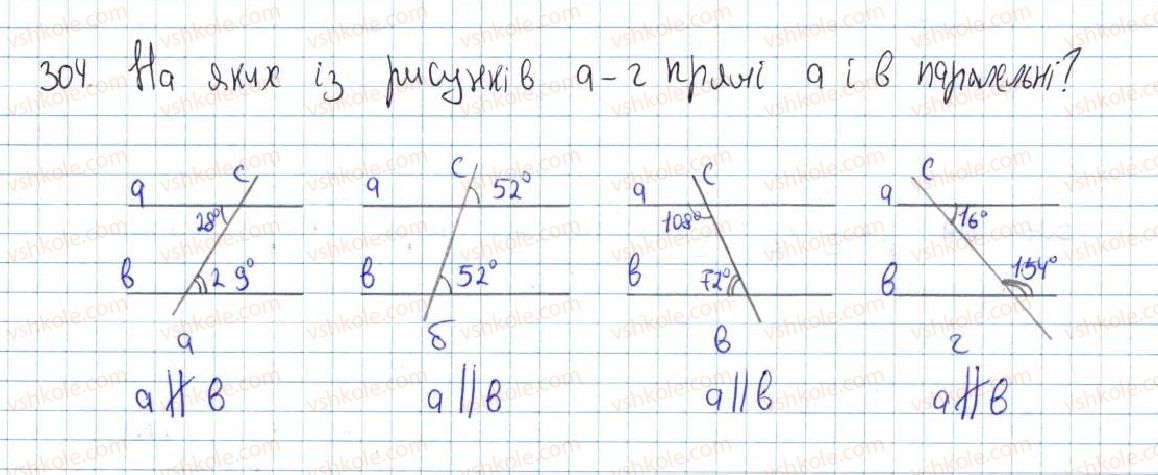 304. На яких із рисунків а-г прямі а і в паралельні?
с с 52° с с
а а а а
28° 108° 16°
в 29° в 52° в 72° в 154°
а б в г
а ∦ в а || в а || в а ∦ в